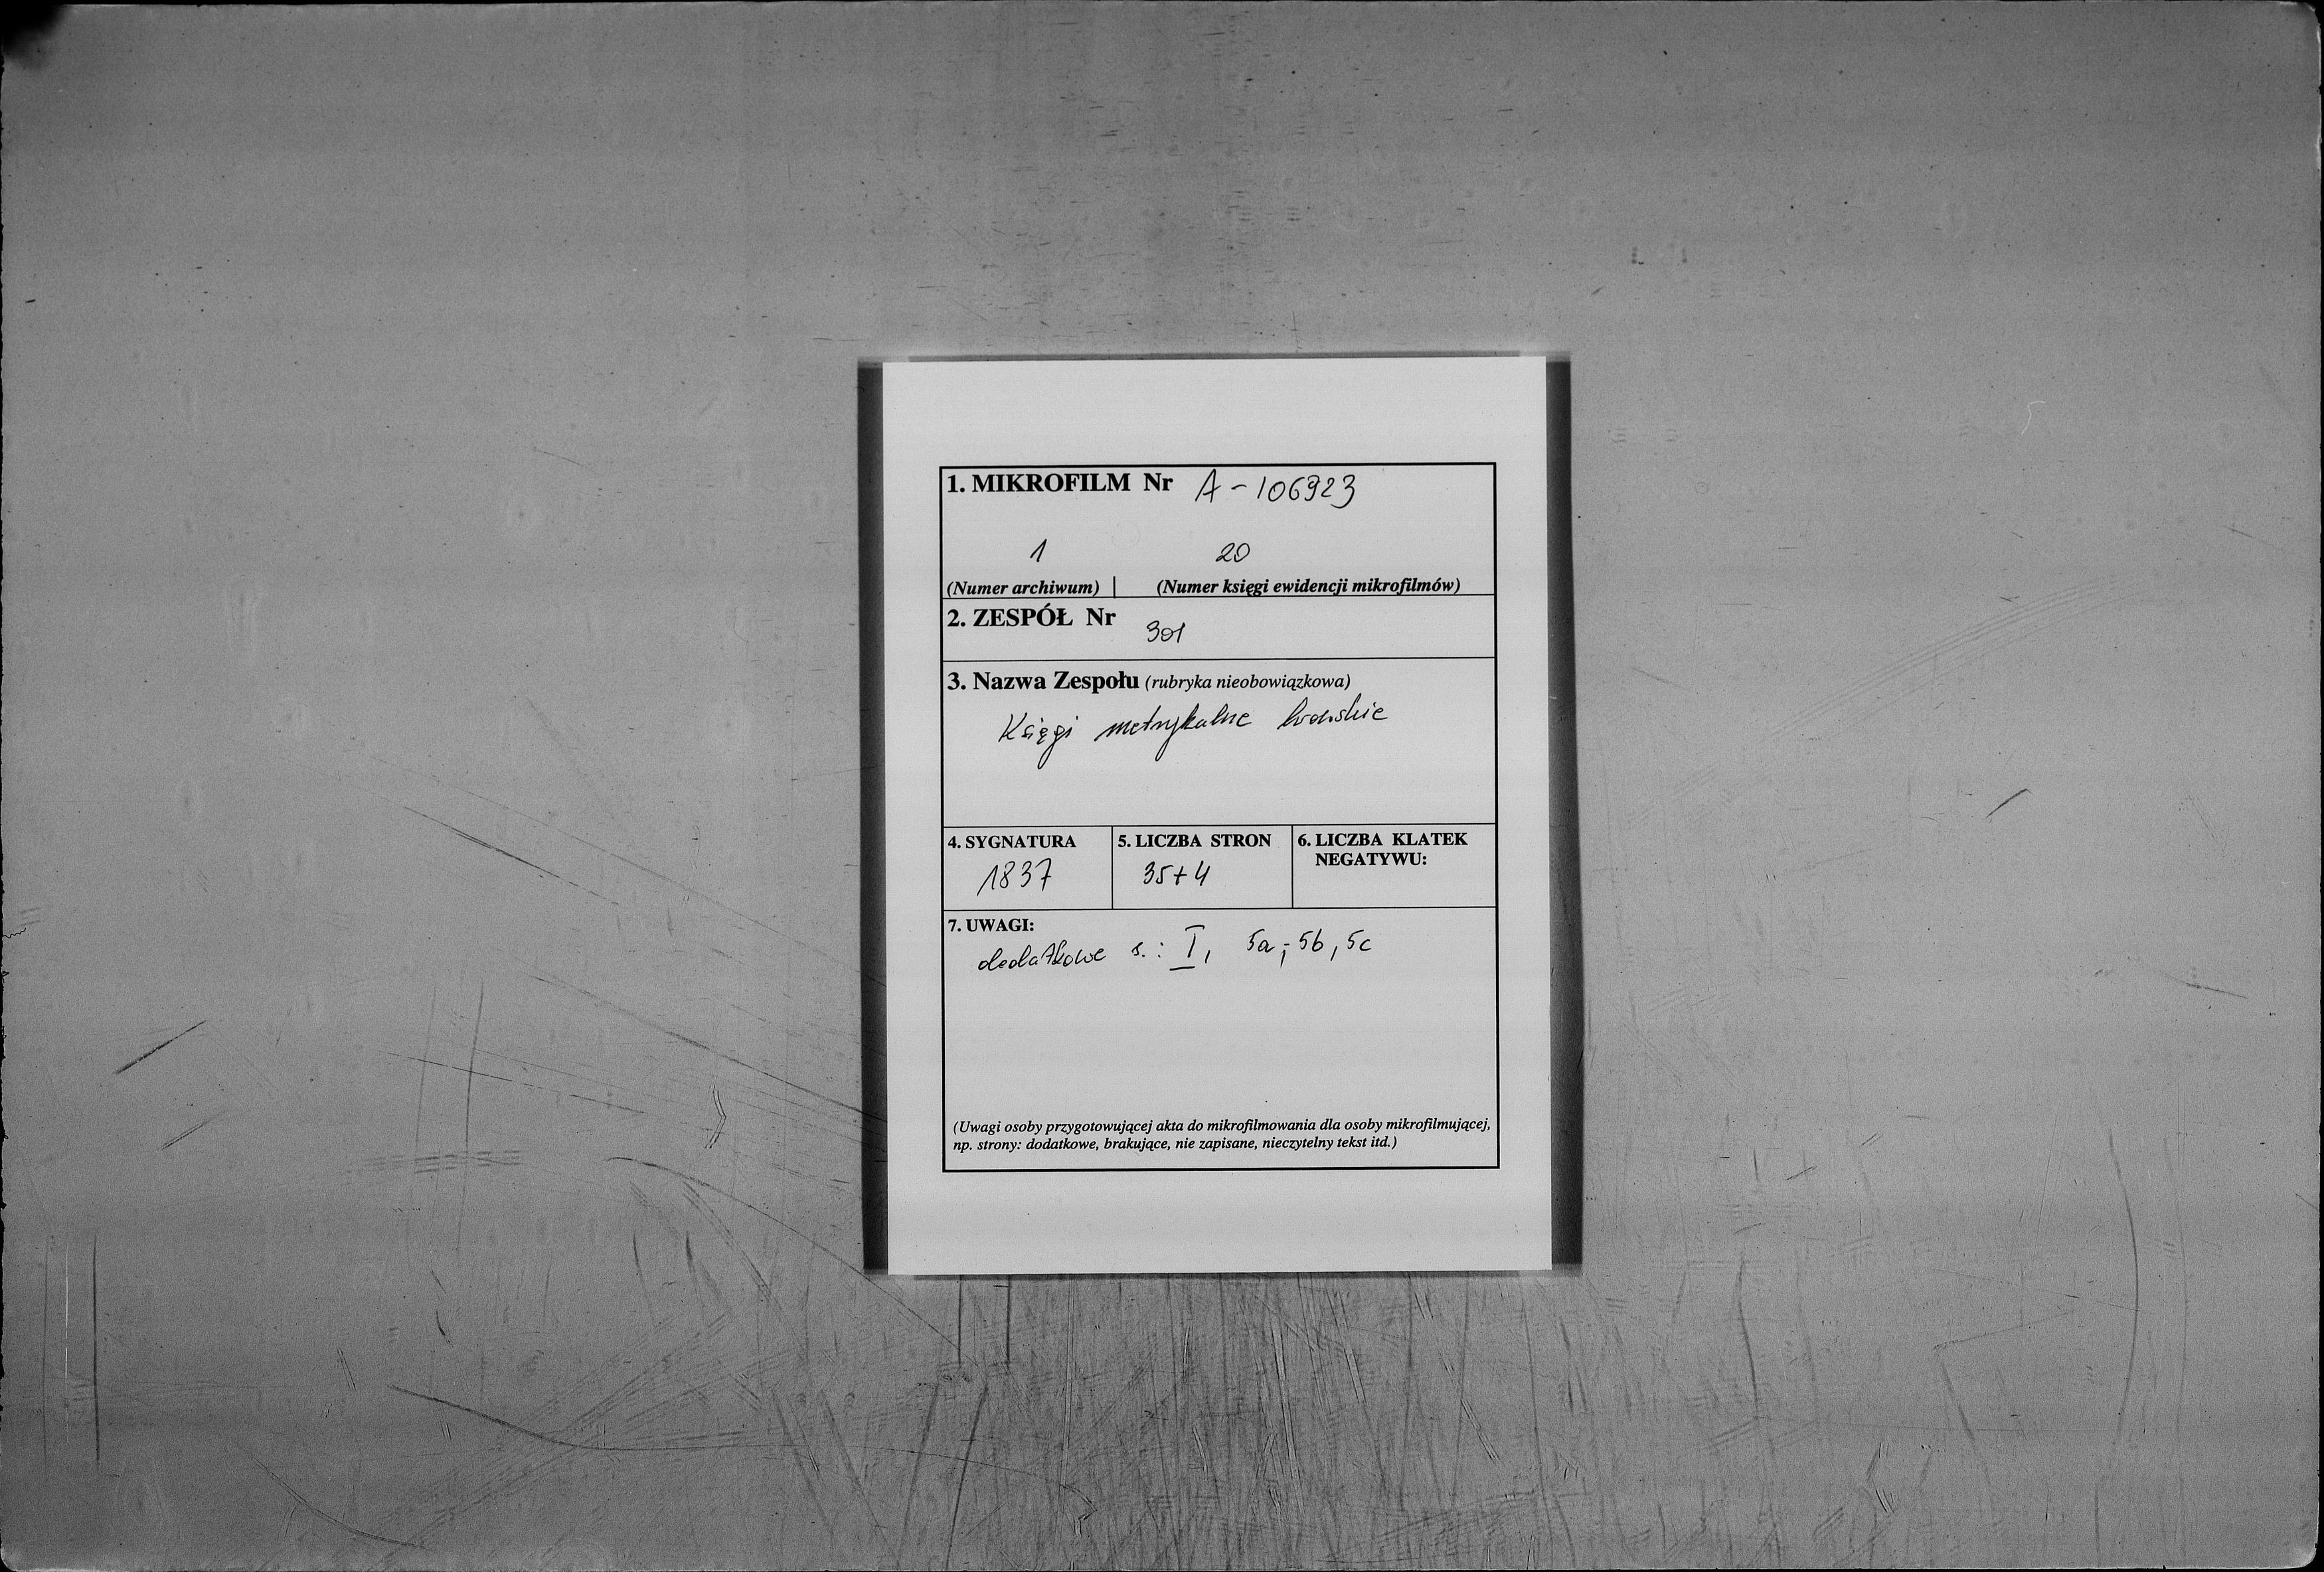 1. MIKROFILM Nr A-106923
1 20
(Numer archiwum) | (Numer księgi ewidencji mikrofilmów)
2. ZESPÓŁ Nr 301
3. Nazwa Zespołu (rubryka nieobowiązkowa)
Księgi metrykalne
4. SYGNATURA 5. LICZBA STRON 6. LICZBA KLATEK
NEGATYWU:
1837 35+4
7. UWAGI:
dodatkowe s.: I, 5a, 5b, 5c
(Uwagi osoby przygotowującej akta do mikrofilmowania dla osoby mikrofilmującej,
np. strony: dodatkowe, brakujące, nie zapisane, nieczytelny tekst itd.)